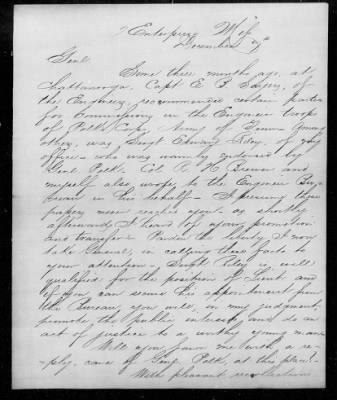 Enterprize Miss
December 2
Genl.
Some three months ago, at
Chattanooga, Capt E. B. Sayers, of
the Engineers, recommended certain parties
for Commissions in the Engineer troops
of Polks Corps, Army of Tenn. Among
others, was Sergt Edward Riley, of your
office - who was warmly endorsed by
Genl Polk. Col. and
myself also wrote to the Engineer Bu-
reau in his behalf - I presume these
papers never reached you - as shortly
afterwards I heard of your promotion
and transfer. Pardon the liberty I now
take General, in calling these facts to
your attention. Sergt Riley is well
qualified for the position of Lieut and
if you can secure his appointment from
the Bureau you will, in my judgment,
promote the public interest, and do an
act of justice to a worthy young man
Will you favor me with a re-
ply, care of Genl Polk, at this place?
With pleasant recollections